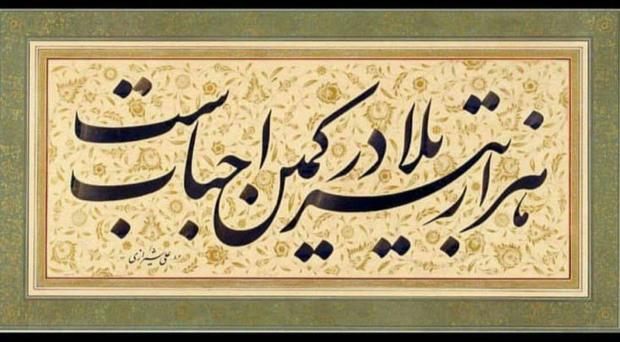 هزار تیر بلا در کمین احبابست
علی شیرازی